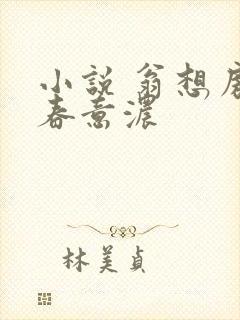 小説 翁想
春意濃
林美貞